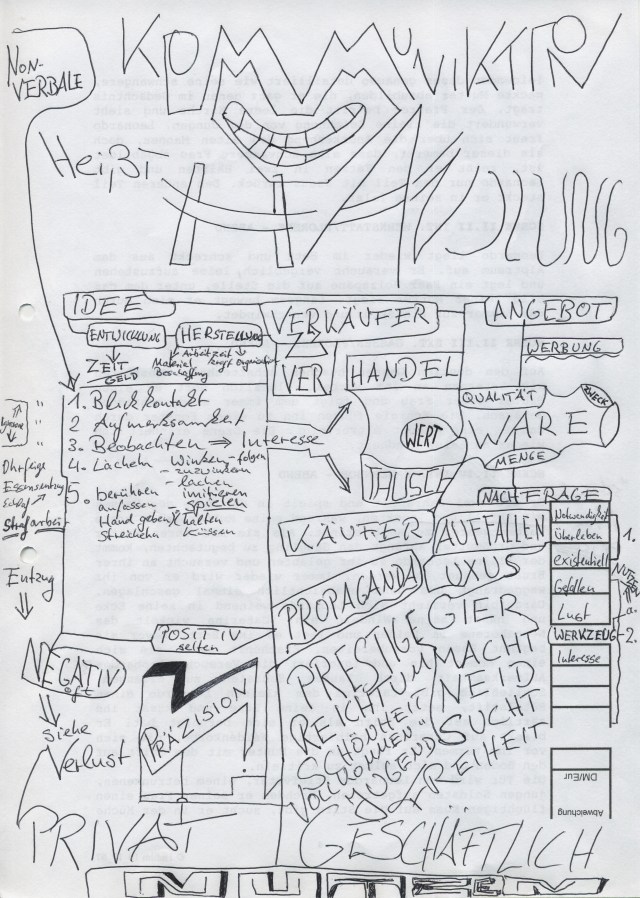 NON-
VERBALE
KOMMUNIKTION
Heißt
HANDLUNG
IDEE
ENTWICKLUNG
HERSTELLUNG
ZEIT
GELD
Arbeitzeit
Material
Beschaffung
Organisation
VERKÄUFER
VER
HANDEL
WERT
TAUSCH
KÄUFER
ANGEBOT
WERBUNG
QUALITÄT
ZWECK
WARE
MENGE
NACHFRAGE
1. Blickkontakt
2 Aufmerksamkeit
3. Beobachten ⇒ Interesse
4. Lächeln Winken - folgen
- zuzwinkern
- lachen
5. berühren imitieren
anfassen - spielen
Hand geben halten
streicheln küssen
Ignoranz
Ohrfeige
Essensentzug
Schlaf
Strafarbeit
Entzug
NEGATIV
oft
siehe
Verlust
POSITIV
selten
PRÄZISION
PROPAGANDA
AUFFALLEN
LUXUS
PRESTIGE
GIER
REICHTUM
MACHT
SCHÖNHEIT
NEID
"VOLLKOMMEN"
SUCHT
JUGEND
FREIHEIT
Notwendigkeit
Überleben
existentiell
Gefallen
Lust
WERKZEUG
Interesse
1.
NUTZEN
2.
DM/Eur
Abweichung
PRIVAT
GESCHÄFTLICH
NUTZEN